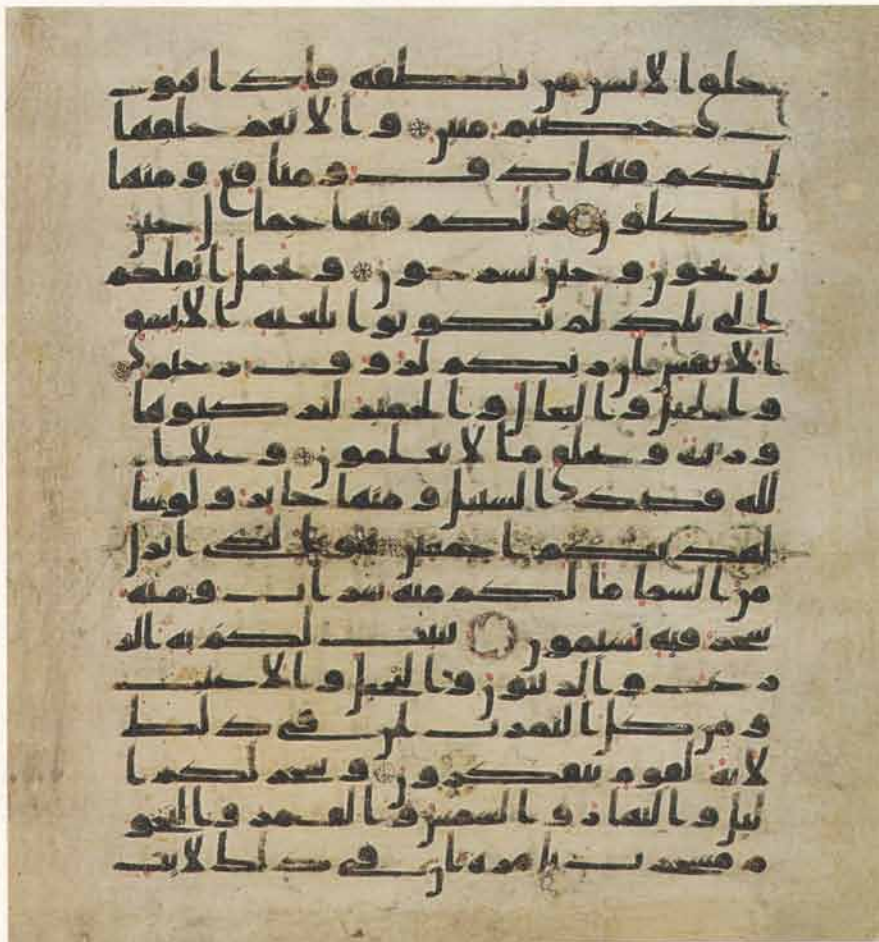 خلق الانسن من نطفة فاذا هو
خصيم مبين والانعم خلقها
لكم فيها دف ومنافع ومنها
تاكلون ولكم فيها جمال حين
تريحون وحين تسرحون وتحمل اثقلكم
الى بلد لم تكونوا بلغيه الا بشق
الانفس ان ربكم لروف رحيم
والخيل والبغال والحمير لتركبوها
وزينة ويخلق ما لا تعلمون وعلى ا
لله قصد السبيل ومنها جاير ولو شا
لهديكم اجمعين هو الذي انزل
من السما ما لكم منه شراب ومنه
شجر فيه تسيمون ينبت لكم به الز
رع والزيتون والنخيل والاعنب
ومن كل الثمرت ان في ذلك
لاية لقوم يتفكرون وسخر لكم ا
ليل والنهار والشمس والقمر والنجو
م مسخرت بامره ان في ذلك لايت